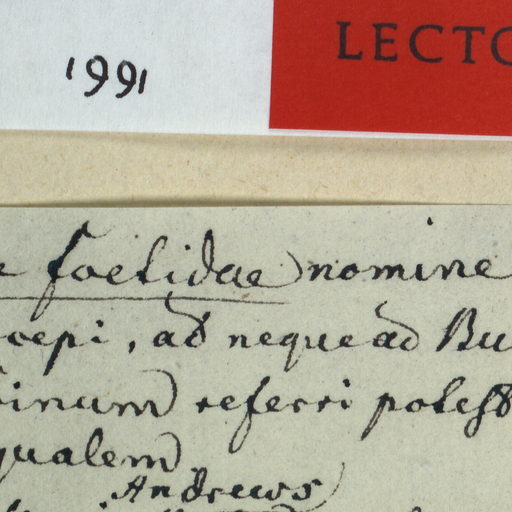 1991
LECTO
foetidae nomine
cepi, at neque ad Bu
inum referri potest
qualem
Andrews